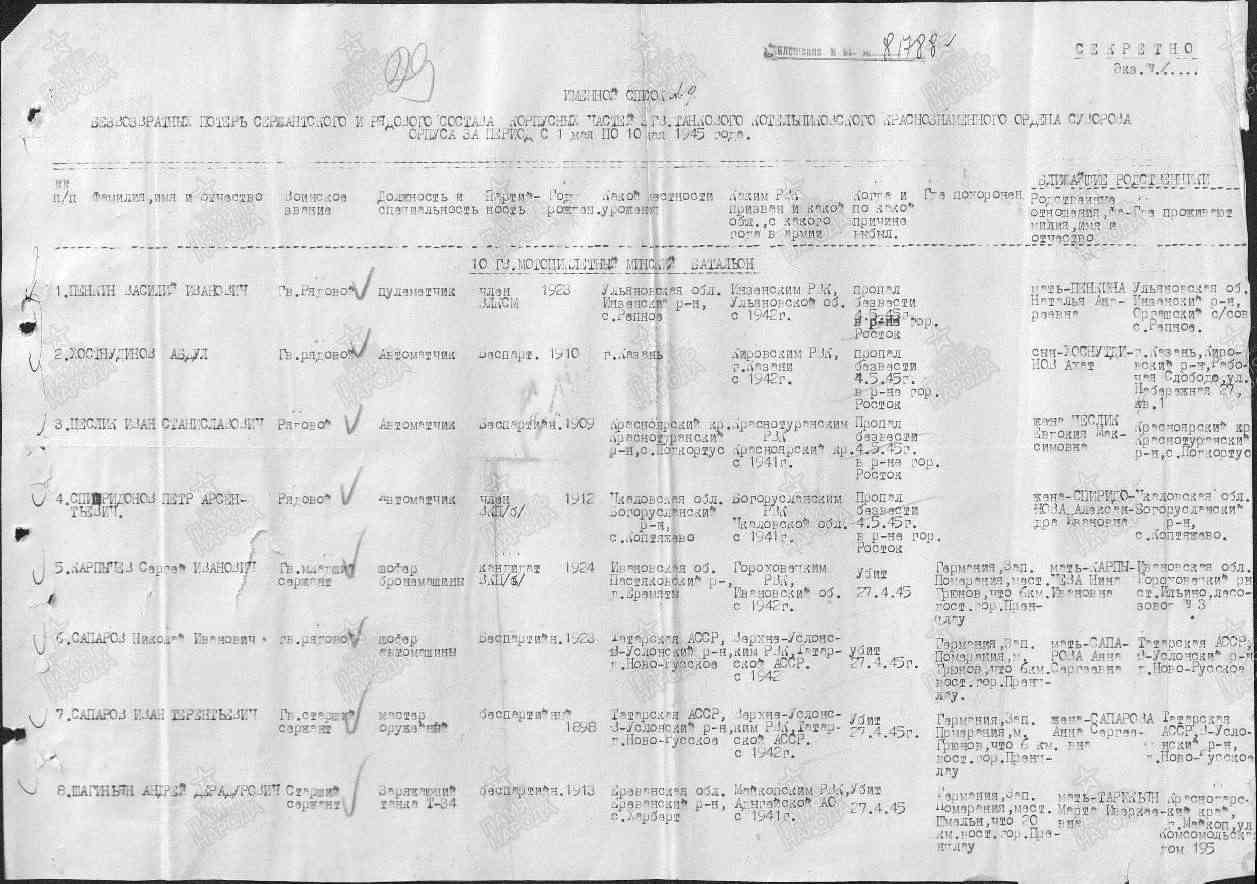 81788
СЕКРЕТНО
Экз.
29
ИМЕННОЙ СПИСОК №9
БЕЗВОЗВРАТНЫХ ПОТЕРЬ СЕРЖАНТСКОГО И РЯДОВОГО СОСТАВА КОРПУСНЫХ ЧАСТЕЙ ГВ.ТАНКОВОГО КОТЕЛЬНИКОВСКОГО КРАСНОЗНАМЕННОГО ОРДЕНА СУВОРОВА
ОРПУСА ЗА ПЕРИОД С 1 мая ПО 10 мая 1945 года.
п/п Фамилия,имя и отчество
Воинское
звание
Должность и
специальность
Партий-
ность
Год
рожден.
Какой местности
уроженец
Каким РВК
призван и какой
обл.,с какого
года в армии
Когда и
по какой
причине
выбыл.
Где похоронен
БЛИЖАЙШИЕ РОДСТВЕННИКИ
Родственные
отношения,фа-
милия,имя и
отчество
Где проживают
10 ГВ.МОТОЦИКЛЕТНЫЙ МИНСКИЙ БАТАЛЬОН
1.ПЕНКИН ВАСИЛИЙ ИВАНОВИЧ
Гв.Рядовой
пулеметчик
член
ВЛКСМ
1923
Ульяновская обл.
Инзенский р-н,
с.Репное
Инзенским РВК,
Ульяновской об.
с 1942г.
пропал
безвести
4.5.45г.
в р-не гор.
Росток
мать-ПЕНКИНА
Наталья Анд-
реевна
Ульяновская об.
Инзенский р-н,
с/сов
с.Репное.
2.ХОСТНУДИНОВ АБДУЛ
Гв.рядовой
Автоматчик
Беспарт.
1910
г.Казань
Кировским РВК,
г.Казани
с 1942г.
пропал
безвести
4.5.45г.
в р-не гор.
Росток
сын-ХОСНУТДИ-
НОВ Ахат
г.Казань,Киро-
вский р-н,Рабо-
чая Слобода,ул.
Набережная 27,
кв.1
3.ЦЕСЛИК ИВАН СТАНИСЛАВОВИЧ
Рядовой
Автоматчик
Беспартийн.
1909
Красноярский кр.
Краснотуранский
р-н,с.Подкортус
Краснотуранским
РВК
Красноярский кр.
с 1941г.
Пропал
безвести
4.5.45г.
в р-не гор.
Росток
жена ЦЕСЛИК
Евгения Мак-
симовна
Красноярский кр
Краснотуранский
р-н,с.Подкортус
4.СПИРИДОНОВ ПЕТР АРСЕН-
ТЬЕВИЧ.
Рядовой
Автоматчик
член
ВКП/б/
1912
Чкаловская обл.
Богорусланский
р-н,
с.Коптяжево
Богорусланским
РВК
Чкаловской обл.
с 1941г.
Пропал
безвести
4.5.45г.
в р-не гор.
Росток
жена-СПИРИДО-
НОВА Алексан-
дра Ивановна
Чкаловская обл.
Богорусланский
р-н,
с.Коптяжево.
5.КАРПЫЧЕВ Сергей ИВАНОВИЧ
Гв.младший
сержант
шофер
бронемашины
кандидат
ВКП/б/
1924
Ивановская об.
Пастяковский р-,
Гороховецким
РВК,
Ивановский об.
с 1942г.
Убит
27.4.45
Германия,Зап.
Померания,мест.
Грюнов,что 6км.
вост.гор.Прен-
цлау
мать-КАРПЫ-
ЧЕВА Нина
Ивановна
Ивановская об.
Гороховецкий рн
ст.Ильино,лесо-
завод № 3
6.САПАРОВ Николай Иванович
гв.рядовой
шофер
автомашины
Беспартийн.
1923
Татарская АССР,
В-Услонский р-н,
Ново-Русское
Верхне-Услонс-
ким РВК,Татар-
ской АССР.
с 1942
убит
27.4.45г.
Германия,Зап.
Померания,м.
Грюнов,что 6км.
вост.гор.Прен-
цлау.
мать-САПА-
РОВА Анна
Сергеевна
Татарская АССР,
В-Услонский р-н
Ново-Русское
7.САПАРОВ ИВАН ТЕРЕНТЬЕВИЧ
Гв.старший
сержант
мастер
оружейный
беспартийный
1898
Татарская АССР,
В-Услонский р-н,
Ново-Русское
Верхне-Услонс-
ким РВК,Татар-
ской АССР.
с 1942г.
Убит
27.4.45г.
Германия,Зап.
Померания,м.
Грюнов,что 6 км.
вост.гор.Прен-
цлау
жена-САПАРОВА
Анна Сергее-
вна
Татарская
АССР,В-Усло-
нский р-н,
Ново-Русское
8.ШАГИНЬЯН АНДРЕЙ ДЕРАДУРОВИЧ
Старший
сержант
Заряжающий
танка Т-34
беспартийн.
1913
Ереванская об.
Ереванский р-н,
с.Харберт
Майкопским РВК,
Адыгейской АО
с 1941г.
Убит
27.4.45
Германия,Зап.
Померания,мест.
Шмельн,что 20
км.вост.гор.Пре-
нцлау
вна
Краснодарс-
кий край,
г.Майкоп,ул
Комсомольска
дом 195